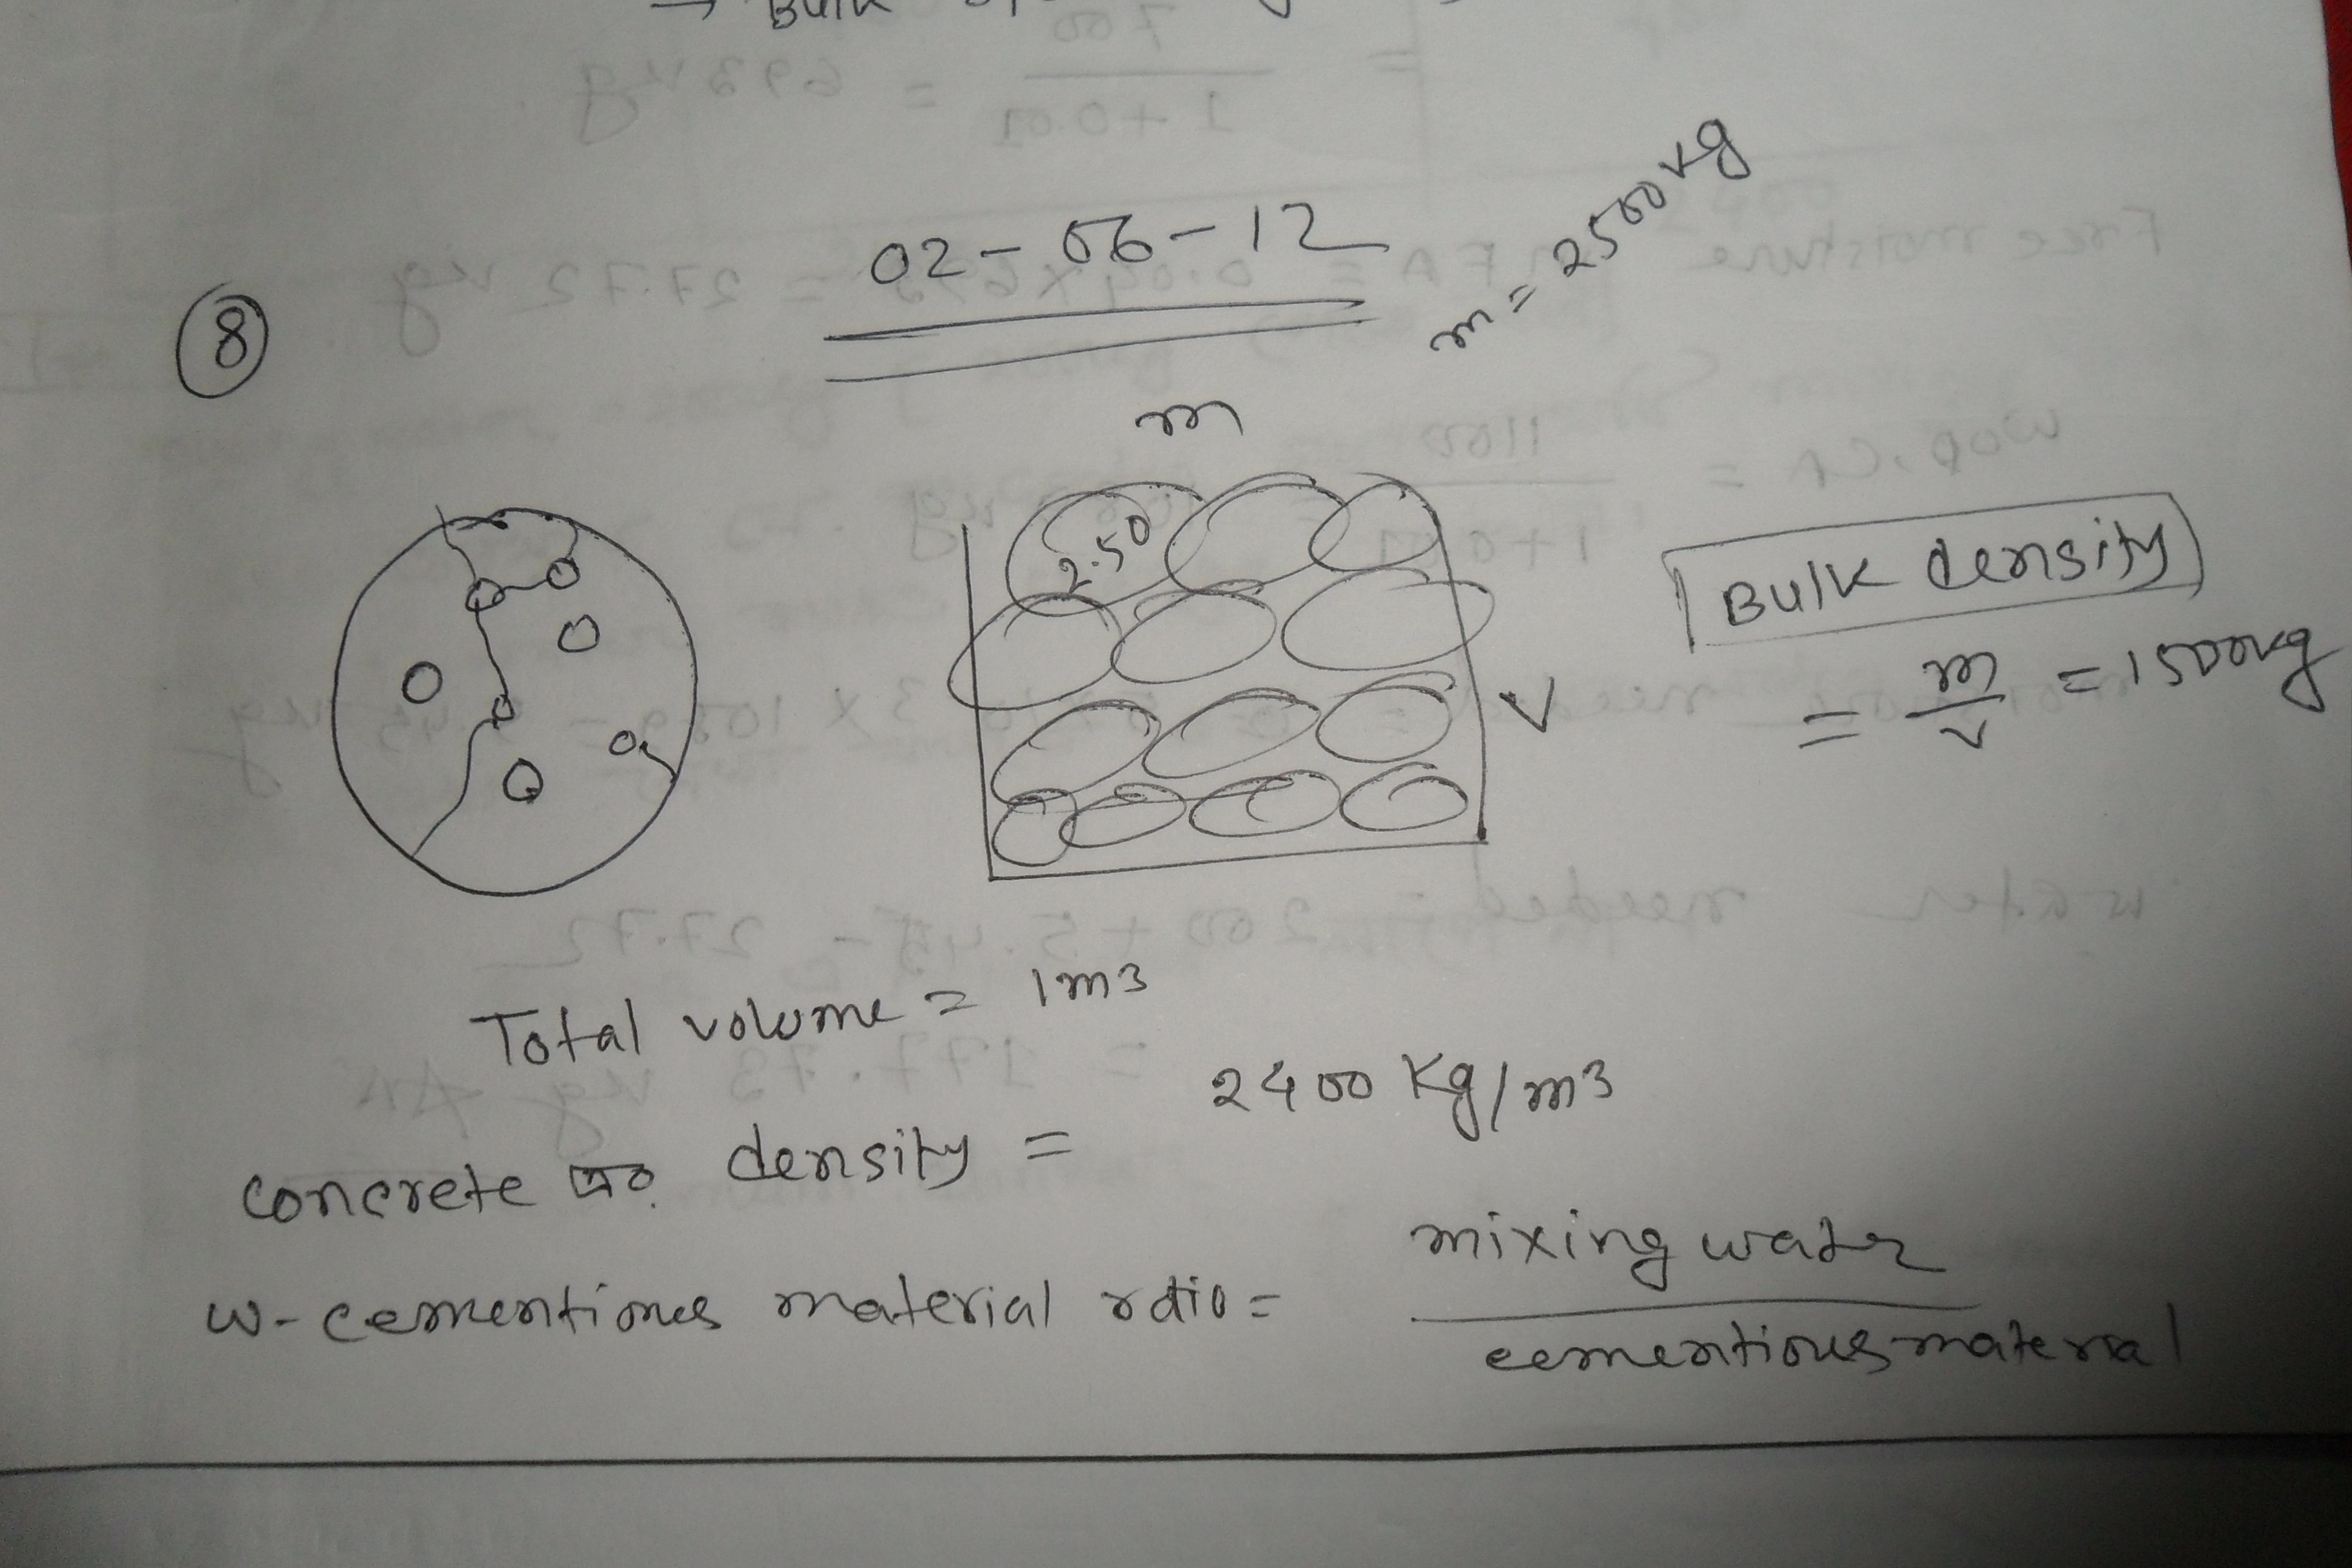 → Bulk
02-06-12
m = 2500 kg
8
m
2.50
V
Bulk density
= m/v = 1500 kg
Total volume = 1m3
concrete এর density = 2400 Kg/m3
w-cementious material ratio = mixing water / cementious material